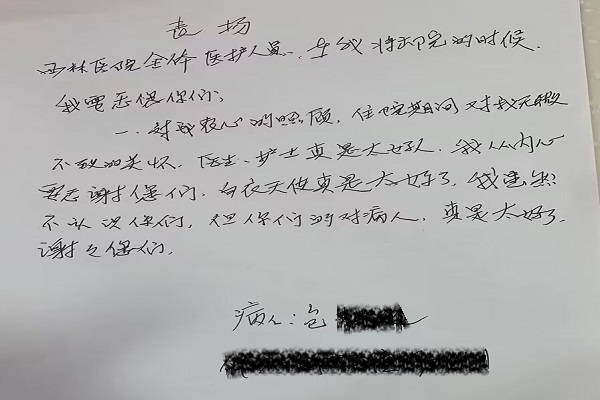 表扬
西林医院全体医护人员、在我将出院的时候,
我要感谢你们、
一、对我衣心的照顾,住院期间对我无微
不致的关怀,医生、护士真是太好人,我从内心
要感谢你们,白衣天使真是太好了,我虽然
不认识你们,但你们的对病人,真是太好了,
谢谢你们,
病人:包